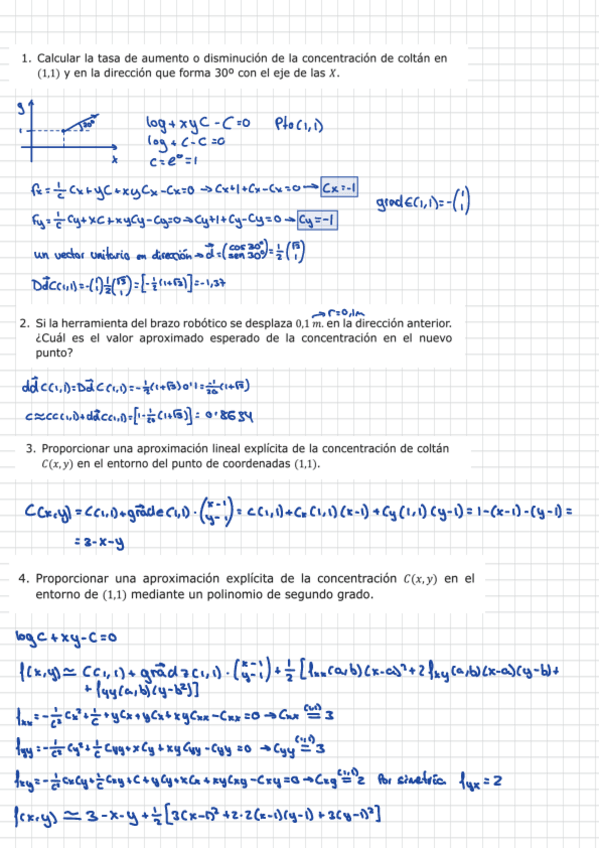 1. Calcular la tasa de aumento o disminución de la concentración de coltán en
(1,1) y en la dirección que forma 30º con el eje de las X.
y
1
30º
x
log + xyC - C = 0 Pto(1,1)
log + C - C = 0
C = e⁰ = 1
fx = 1/C Cx + yC + xyCx - Cx = 0 → Cx + 1 + Cx - Cx = 0 → Cx = -1
grad C(1,1) = -(1 1)
Fy = 1/C Cy + xC + xyCy - Cy = 0 → Cy + 1 + Cy - Cy = 0 → Cy = -1
un vector unitario en dirección → d = (cos 30º sen 30º) = 1/2 (√3 1)
DdC(1,1) = -(1 1) 1/2 (√3 1) = [-1/2 (1+√3)] = -1,37
→ r = 0,1m
2. Si la herramienta del brazo robótico se desplaza 0,1 m. en la dirección anterior.
¿Cuál es el valor aproximado esperado de la concentración en el nuevo
punto?
ddC(1,1) = DdC(1,1) = -1/2 (1+√3) 0'1 = -1/20 (1+√3)
C ≈ C(1,1) + ddC(1,1) = [1 - 1/20 (1+√3)] = 0'8634
3. Proporcionar una aproximación lineal explícita de la concentración de coltán
C(x,y) en el entorno del punto de coordenadas (1,1).
C(x,y) = C(1,1) + grad C(1,1) · (x-1 y-1) = C(1,1) + Cx(1,1)(x-1) + Cy(1,1)(y-1) = 1-(x-1)-(y-1) =
= 3-x-y
4. Proporcionar una aproximación explícita de la concentración C(x,y) en el
entorno de (1,1) mediante un polinomio de segundo grado.
log C + xy - C = 0
f(x,y) ≃ C(1,1) + grad z(1,1) · (x-1 y-1) + 1/2 [fxx(a,b)(x-a)² + 2 fxy(a,b)(x-a)(y-b) +
+ fyy(a,b)(y-b²)]
fxx = -1/C² Cx² + 1/C + yCx + yCx + xyCxx - Cxx = 0 → Cxx (1,1)= 3
fyy = -1/C² Cy² + 1/C Cyy + xCy + xyCyy - Cyy = 0 → Cyy (1,1)= 3
fxy = -1/C² CxCy + 1/C Cxy + C + yCy + xCx + xyCxy - Cxy = 0 → Cxy (1,1)= 2 Por simetría fyx = 2
f(x,y) ≃ 3-x-y + 1/2 [3(x-1)² + 2·2(x-1)(y-1) + 3(y-1)²]